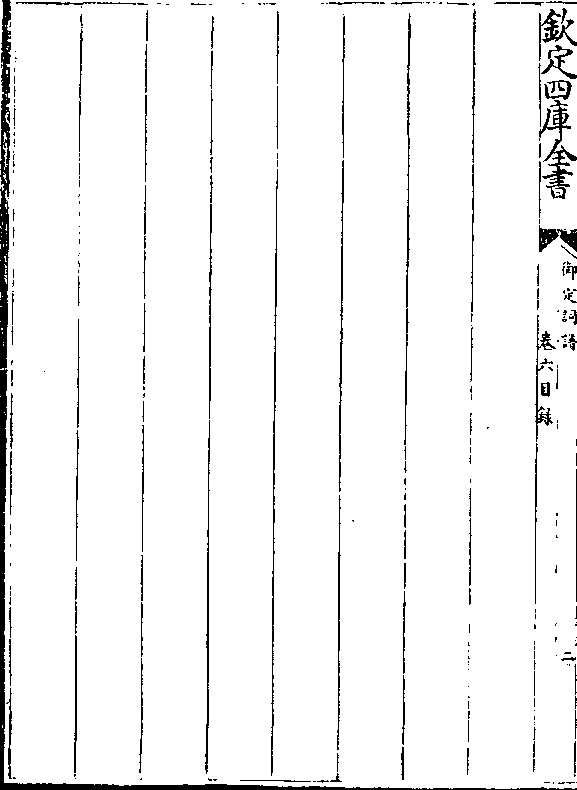 欽定四庫全書
御定詞譜
卷六目錄
二